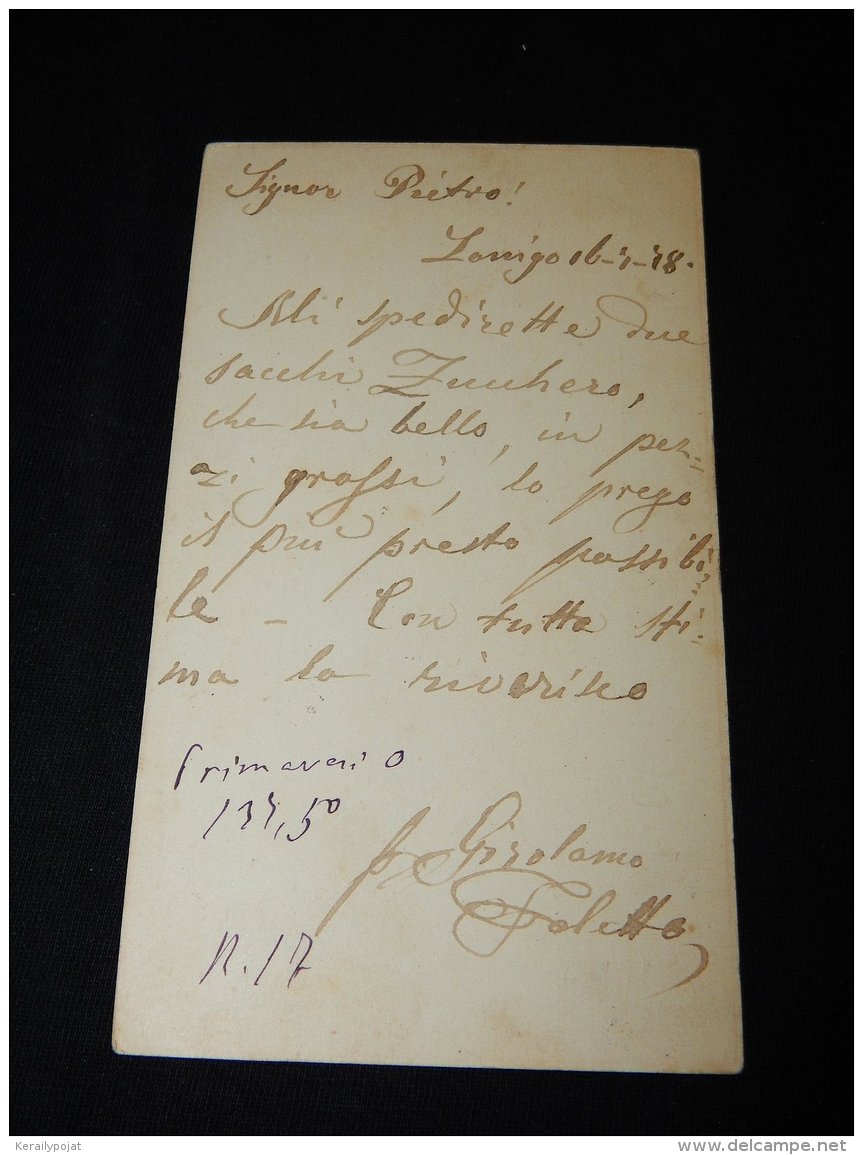 Signor Pietro!
Lonigo 16-5-78.
Mi spedirette due
sacchi Zucchero,
che sia bello, in pez-
zi grossi, lo prego
il più presto possibi-
le - Con tutta sti-
ma la riverisco
Primavari o
137,50
R. 17
Girolamo
Foletto
Kerailypojat
www.delcampe.net